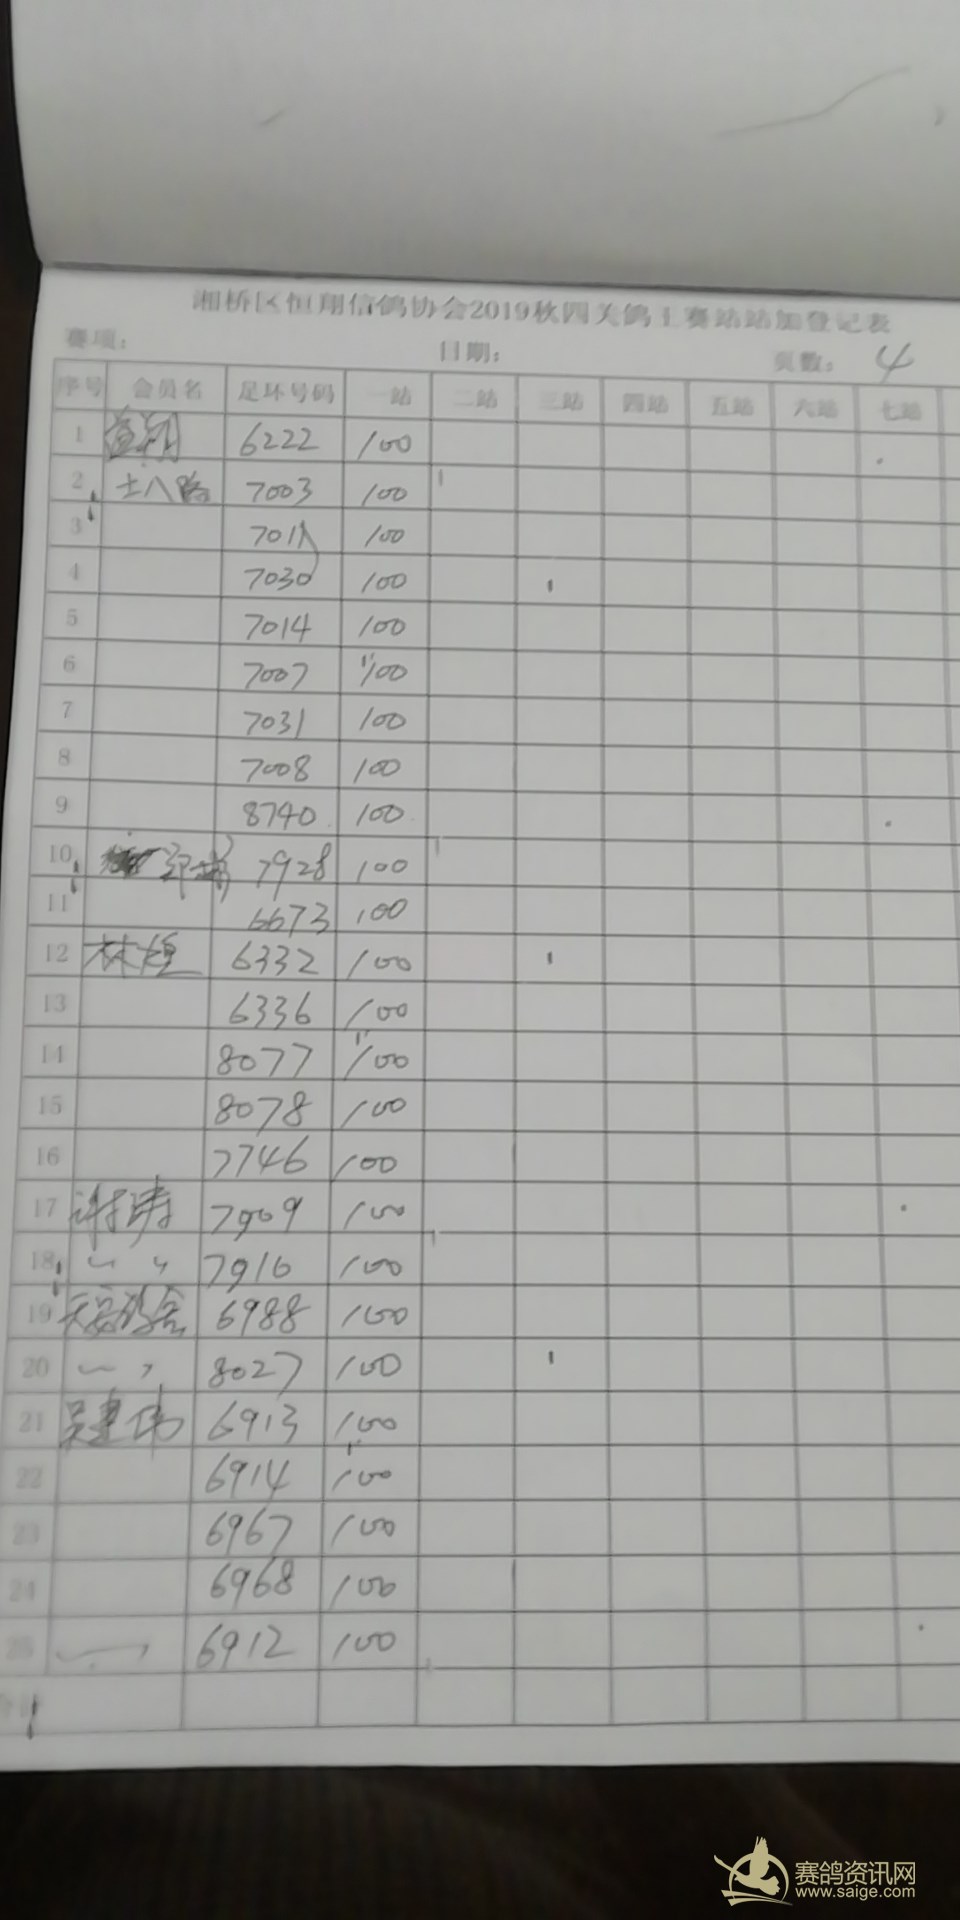 湘桥区恒翔信鸽协会2019秋四关鸽王赛站站加登记表
赛项: 日期: 页数: 4
序号 会员名 足环号码 一站 二站 三站 四站 五站 六站 七站
1 6222 100
2 十八路 7003 100
3 7011 100
4 7030 100
5 7014 100
6 7007 100
7 7031 100
8 7008 100
9 8740 100
10 7928 100
11 6673 100
12 林煌 6332 100
13 6336 100
14 8077 100
15 8078 100
16 7746 100
17 谢涛 7909 100
18 〃 〃 7916 100
19 6988 100
20 〃 〃 8027 100
21 吴建伟 6913 100
22 6914 100
23 6967 100
24 6968 100
25 6912 100
赛鸽资讯网
www.saige.com